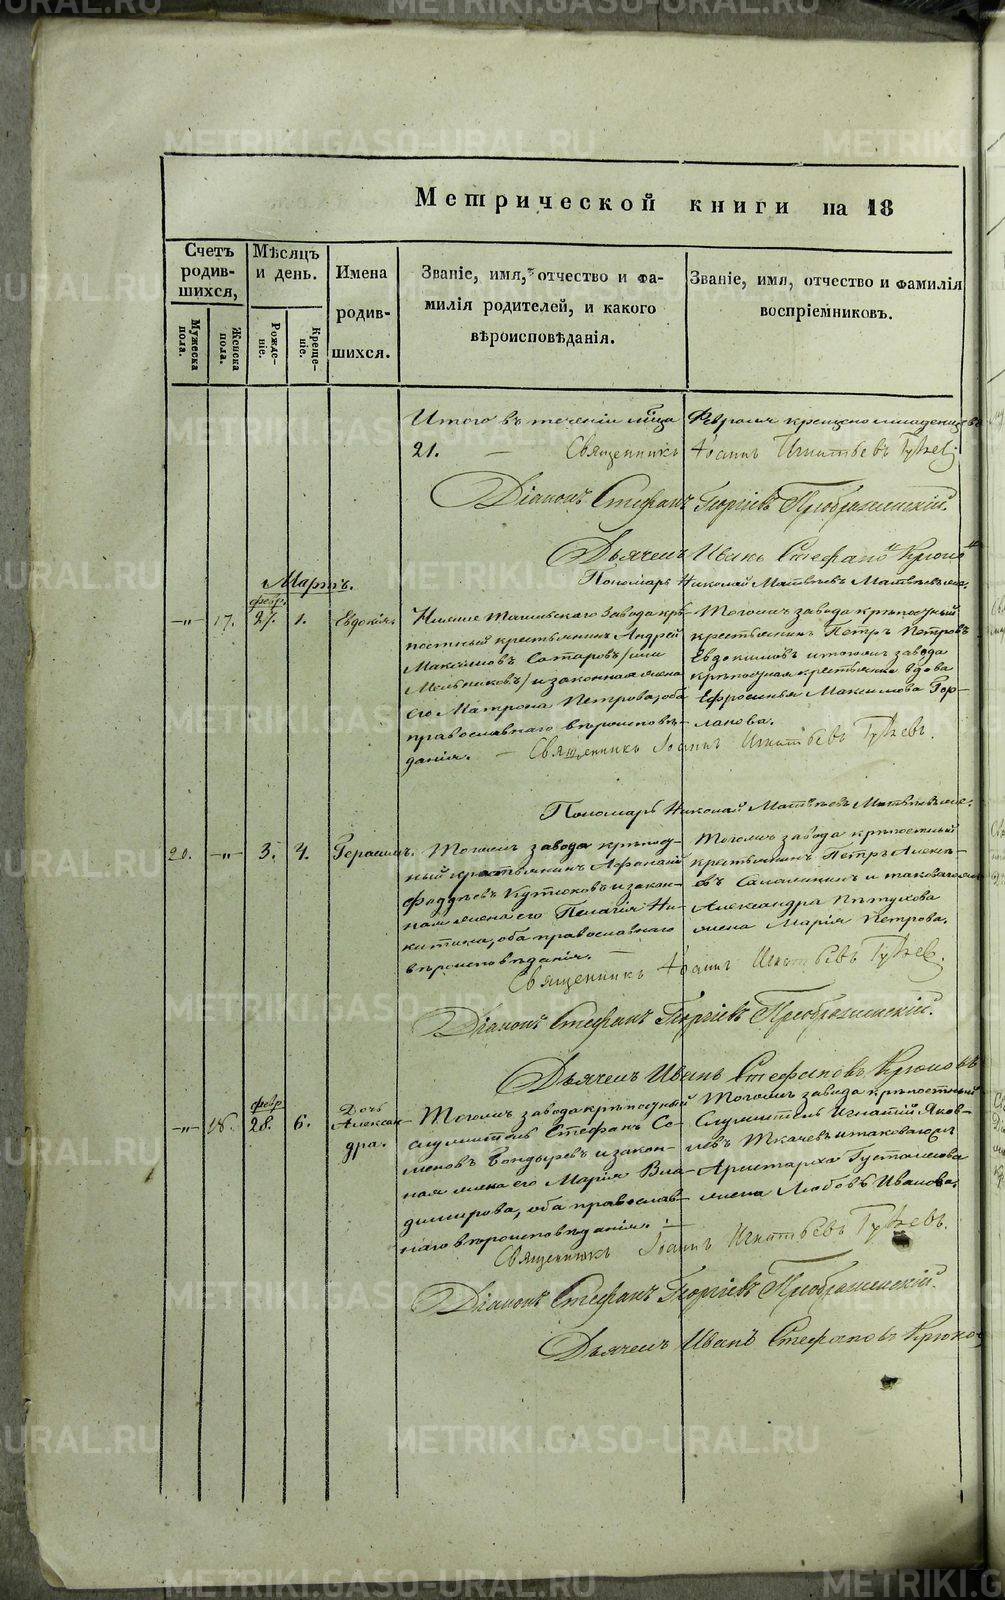 Метрической книги на 18
Счетъ родившихся,
Мужеска пола.
Женска пола.
Мѣсяцъ и день.
Рожденіе.
Крещеніе.
Имена родившихся.
Званіе, имя, отчество и фамилія родителей, и какого вѣроисповѣданія.
Званіе, имя, отчество и фамилія воспріемниковъ.
Итого въ теченіи мѣсца Февраля крещено младенцевъ
21. — Священникъ Іоаннъ Игнатьевъ
Діаконъ Стефанъ Георгіевъ Преображенскій.
Дьячекъ Иванъ Стефановъ Крюковъ
Пономарь Николай Матвѣевъ
Мартъ.
февр.
—"— 17. 27. 1. Евдокія.
Нижне Тагильскаго Завода крѣ-
постный крестьянинъ Андрей
Максимовъ Сатаровъ /или
Мельниковъ/ и законная жена
его Матрона Петрова, оба
православнаго вѣроисповѣ-
данія. —
Тогожъ завода крѣпостный
крестьянинъ Петръ Петровъ
Евдокимовъ и тогожъ завода
крѣпостная крестьянка вдова
Ефросинья Максимова Гор-
ланова.
Священникъ Іоаннъ Игнатьевъ
Пономарь Николай Матвѣевъ
20. —"— 3. 4. Герасимъ.
Тогожъ завода крѣпост-
ный крестьянинъ Афанасій
Фаддѣевъ Кутюковъ и закон-
ная жена его Пелагія Ни-
китина, оба православнаго
вѣроисповѣданія. —
Тогожъ завода крѣпостный
крестьянинъ Петръ Алексѣ-
евъ и таковагожъ
Александра Пѣтухова
жена Марія Петрова.
Священникъ Іоаннъ Игнатьевъ
Діаконъ Стефанъ Георгіевъ Преображенскій.
Дьячекъ Иванъ Стефановъ Крюковъ
февр
—"— 18. 28. 6.
Дочь
Алексан-
дра.
Тогожъ завода крѣпостный
служитель Стефанъ Се-
меновъ Бондыревъ и закон-
ная жена его Марія Вла-
димирова, оба православ-
наго вѣроисповѣданія. —
Тогожъ завода крѣпостный
Служитель Игнатій Яков-
левъ Ткачевъ и таковагожъ
Аристарха
жена Любовь Иванова.
Священникъ Іоаннъ Игнатьевъ
Діаконъ Стефанъ Георгіевъ Преображенскій.
Дьячекъ Иванъ Стефановъ Крюковъ
METRIKI.GASO-URAL.RU